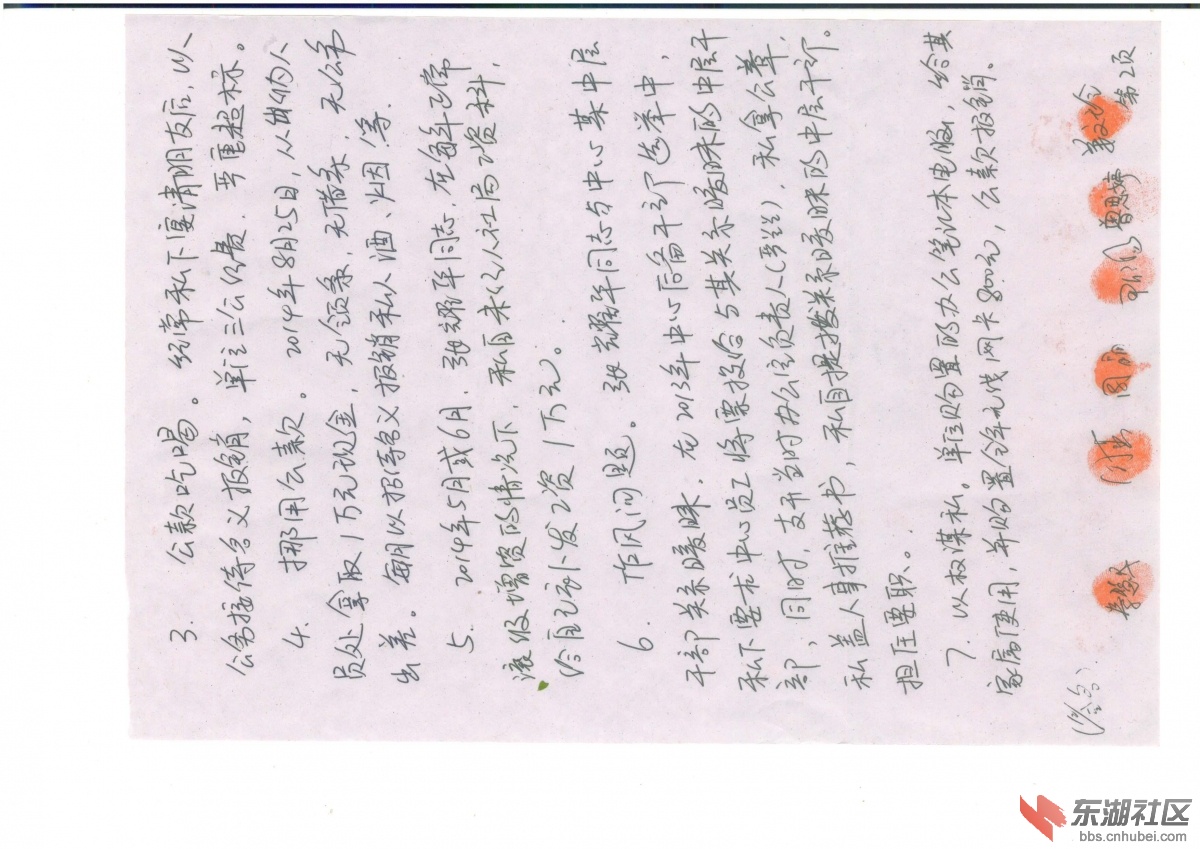 3. 公款吃喝。经常私下宴请朋友后,以
公务接待名义报销,单位三公经费严重超标。
4. 挪用公款。2014年8月25日,从
员处拿取1万元现金,无领条,无借条,无公务
出差。每月以招待名义报销私人酒、烟等.
5. 2014年5月或6月,张耀华同志,在每年正常
滚级增资的情况下,私自未经人社局工资科,
给自己补发工资1万元。
6. 作风问题。张耀华同志与中心某中层
干部关系暧昧.在2013年中心后备干部选举中,
私下要求中心员工将票投给与其关系暧昧的中层干
部,同时,支开当时办公室负责人,私拿公章,
私盖人事推荐书,私自提拔关系暧昧的中层干部.
担任要职。
7. 以权谋私。单位购置的办公笔记本电脑,给其
家属使用,并购置全年无线网卡800元,公款报销.
(签名):
曾思婷
第2页
东湖社区
bbs.cnhubei.com